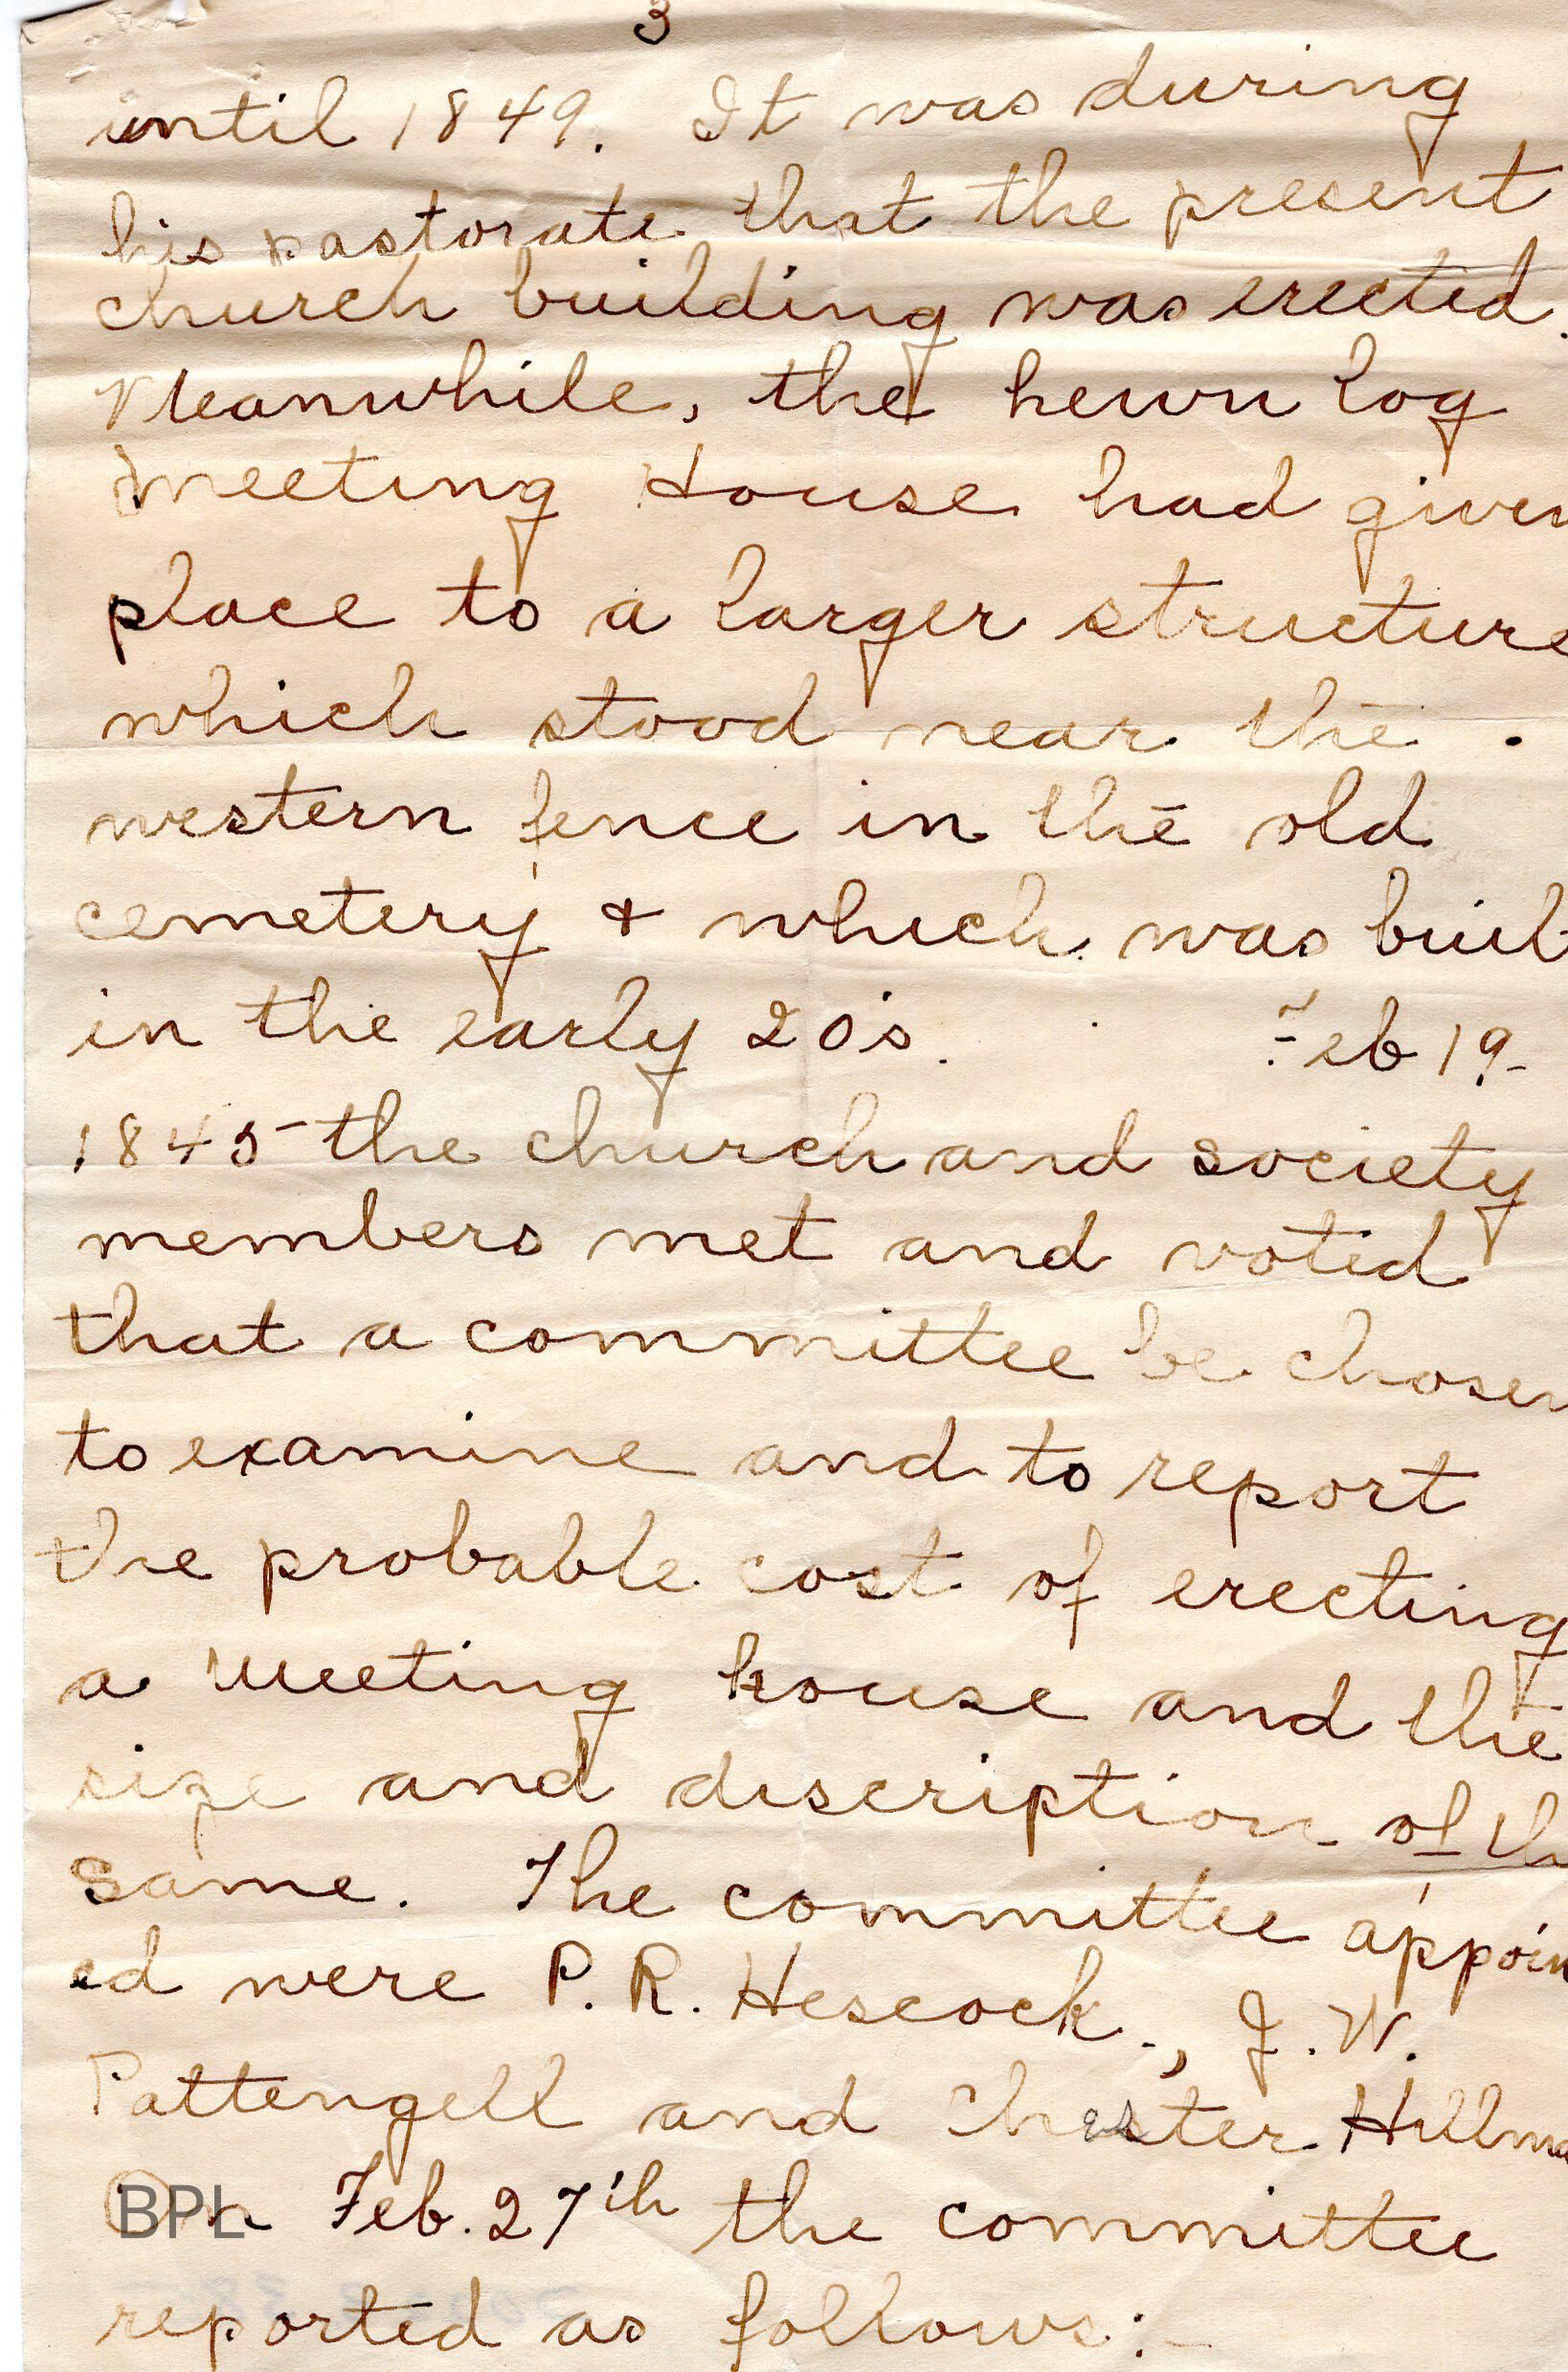 3
until 1849. It was during
his pastorate that the present
church building was erected.
Meanwhile, the hewn log
meeting House had given
place to a larger structure
which stood near the
western fence in the old
cemetery & which was buil
in the early 20's. Feb 19-
1845 the church and society
members met and voted
that a committee be chosen
to examine and to report
the probable cost of erecting
a meeting house and the
size and discription of th
same. The committee appoin
ed were P. R. Hescock., J. W.
Pattengell and Chester Hillma
On Feb. 27th the committee
reported as follows:-
BPL